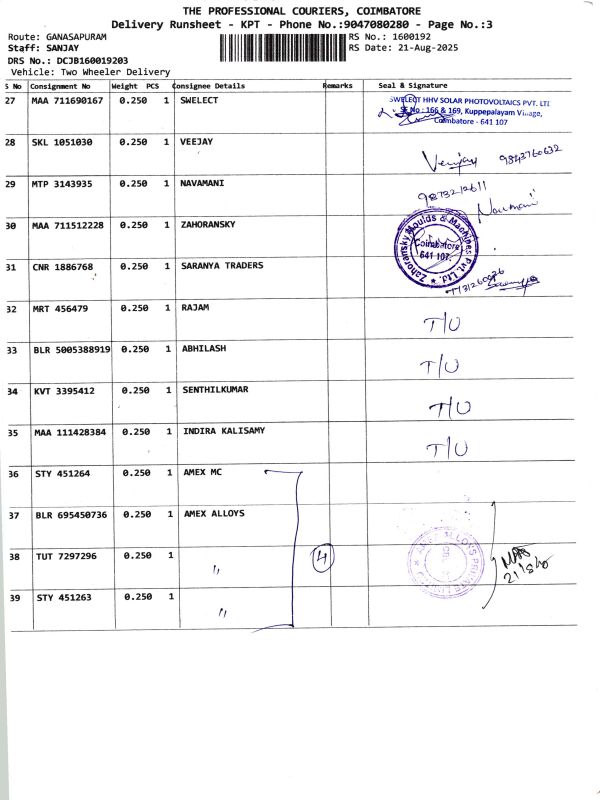 THE PROFESSIONAL COURIERS, COIMBATORE
Delivery Runsheet - KPT - Phone No.:9047080280 - Page No.:3
Route: GANASAPURAM
RS No.: 1600192
Staff: SANJAY
RS Date: 21-Aug-2025
DRS No.: DCJB160019203
Vehicle: Two Wheeler Delivery
S No Consignment No Weight PCS Consignee Details Remarks Seal & Signature
27 MAA 711690167 0.250 1 SWELECT
SWELECT HHV SOLAR PHOTOVOLTAICS PVT. LTD
SF.No : 166 & 169, Kuppepalayam Village,
Coimbatore - 641 107
28 SKL 1051030 0.250 1 VEEJAY Veejay 9843760632
29 MTP 3143935 0.250 1 NAVAMANI 9873212611
Navamani
30 MAA 711512228 0.250 1 ZAHORANSKY
Zahoransky Moulds & Machines Pvt. Ltd.
Coimbatore
641 107.
31 CNR 1886768 0.250 1 SARANYA TRADERS
32 MRT 456479 0.250 1 RAJAM T/U
33 BLR 5005388919 0.250 1 ABHILASH T/U
34 KVT 3395412 0.250 1 SENTHILKUMAR T/U
35 MAA 111428384 0.250 1 INDIRA KALISAMY T/U
36 STY 451264 0.250 1 AMEX MC
37 BLR 695450736 0.250 1 AMEX ALLOYS
AMEX ALLOYS PRIVATE LIMITED
38 TUT 7297296 0.250 1 " 4
39 STY 451263 0.250 1 "